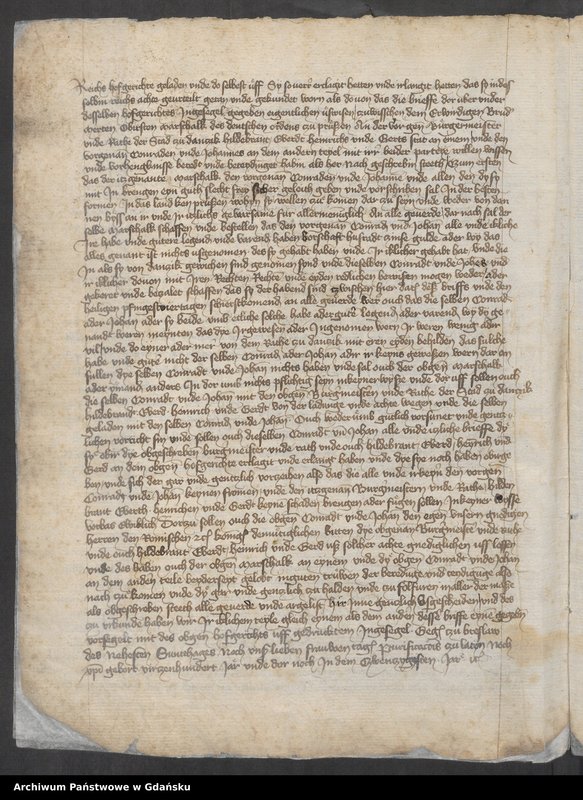 Reichs hofgerichte geladen vnde do selbest vff Sy so verr erlaget hetten vnde irlanget hetten das sy in des
selbin reichs achte geurteilt getan vnde gekundet worn als dovon das die briefe der uber vnder
desselben hofgerichts Ingesegel gegeben eigentlichen vswisen zwusschen dem Erwirdigen Brud
Marschalk des deutschen ordens zu prussen An der vor gen Burgermeister
vnde Rathe der Stad zu danczik hildebrant Ewerd heinrichs vnde Gerds seite an einem vnde den
vorgenan Conraden vnde Johannes an dem andern teyel mit wir beider partye willen wissen
vnde vorhengnusse berett vnde beteydinget habin als her nach geschrebin steeth Czum ersten
das der iczgenante marschalk den vorgenan Conraden vnde Johanne vnde allen den dy sy
mit In brengen eyn guth slecht frey sicher geloith geben vnde vorschriben sal In der besten
formen In das land ken prusen wohyn sy wellen zu komen dar zu seyn vnde weder von dan
nen byss an ir vnde ir iclichs gewarsame fur allermeniglich An alle geuerde dar nach sal der
selbe marschalk schaffen vnde bestellen das den vorgenan Conrad vnd Johan alle vnde icliche
Ire habe vnde gutere legend vnde varend haben
alles genant ist nichts usgenomen das sy gehabt haben vnde Ir iclicher gehabt hat vnde die
In als sy von danczik gewichen sind genomen synd vnde dieselben Conradt vnde Johes vnd
ir iclicher dovon mit Iren Rechten vnde eyden redlichen bewisen mogen weder ader
gekeret vnde beczalet schaffen das sy der habend sind zwosschen hier dato des briffs vnde den
heiligen pfingestvirtagen schirstkomend an alle geuerde wer ouch das die selben Conrad
ader Johan ader sy beide vmb etliche soliche habe ader guter legend ader varend wy dy ge-
nandt weren meynten das dye In gewesen ader In genomen wern Ir werr wenig ader
vil vnde do eyner ader mer von dem Rathe zu danczik mit eren eyden behilden das sulche
habe vnde gute nicht der selben Conrad ader Johan adir ir keyns gewesen wern dar an
sullen dye selben Conradt vnde Johan nichts haben vnde sal ouch der obgen marschalk
ader ymand anders In dor vmb nichts pflichtig seyn inkeynerwyse vnde dor uff sullen ouch
die selben Conradt vnde Johan mit den obgen Burgmeisten vnde Rathe der Stad zu danczik
hildebrandt Ewerd heinrich vnde Gerdt von der ladunge vnde achte wegen vnde die selben
geladen mit den selben Conrad vnde Johan Ouch weder vmb gutlich vorsunet vnde gencz-
lichen vorricht sin vnde sollen ouch dieselben Conradt vnd Johan alle vnde iczliche brieffe dy
sy obir dye obgeschreben burgmeister vnde rath vnde ouch hildebrant Ewerd heynrich vnd
Gerd an dem obgen hofgerichte erlaget vnde erlanget haben vnde dye sye noch haben obirge
ben vnde sich der gar vnde genczlich vorczeihen also das die alle vnde ir keyn den vorgen
Conradt vnde Johan keynen fromen vnde den iczgenan Burgmeistern vnde Rathe hilden
brant Ewerth heinrichen vnde Gerdt keyne schaden brengen ader fugen sollen Inkeyner wysse
vorbas ewiklich Dorczu sollen ouch die obgen Conradt vnde Johan den egen vnsern gnedigen
herren den Romischen etc konig demuticlichen bitten dye obgenan Burgmeister vnde rathe
vnde ouch hildebrant Ewerdt heinrich vnde Gerd us solcher achte gnediglichen uss lossen
vnde des haben ouch der obgen marschalk an eynem vnde dy obgen Conradt vnde Johan
an dem anden teile beydersept gelobt in guten truwen der beredunge vnd teydigunge also
nach zu komen vnde dy gar vnde genczlich zu halden vnde zu folfuren in aller der masse
als obgeschriben steeth alle geuerde vnde argelist hir Inne genczlich usgescheiden vnd des
zu vrkunde haben wir Ir iclichem teyle gleich eynem als dem anden desse briffe eyne gegeben
vorsegelt mit des obgen hofgerichts uff gedrucktem Ingesegel Gegeb zu breslaw
des Nehesten Sunthages Noch vnß lieben frauwen tage Purificacionis zu laten Noch
xpi gebort virczenhundert Jar vnde dor noch In dem Czwenczygesten Jare etc
Archiwum Państwowe w Gdańsku